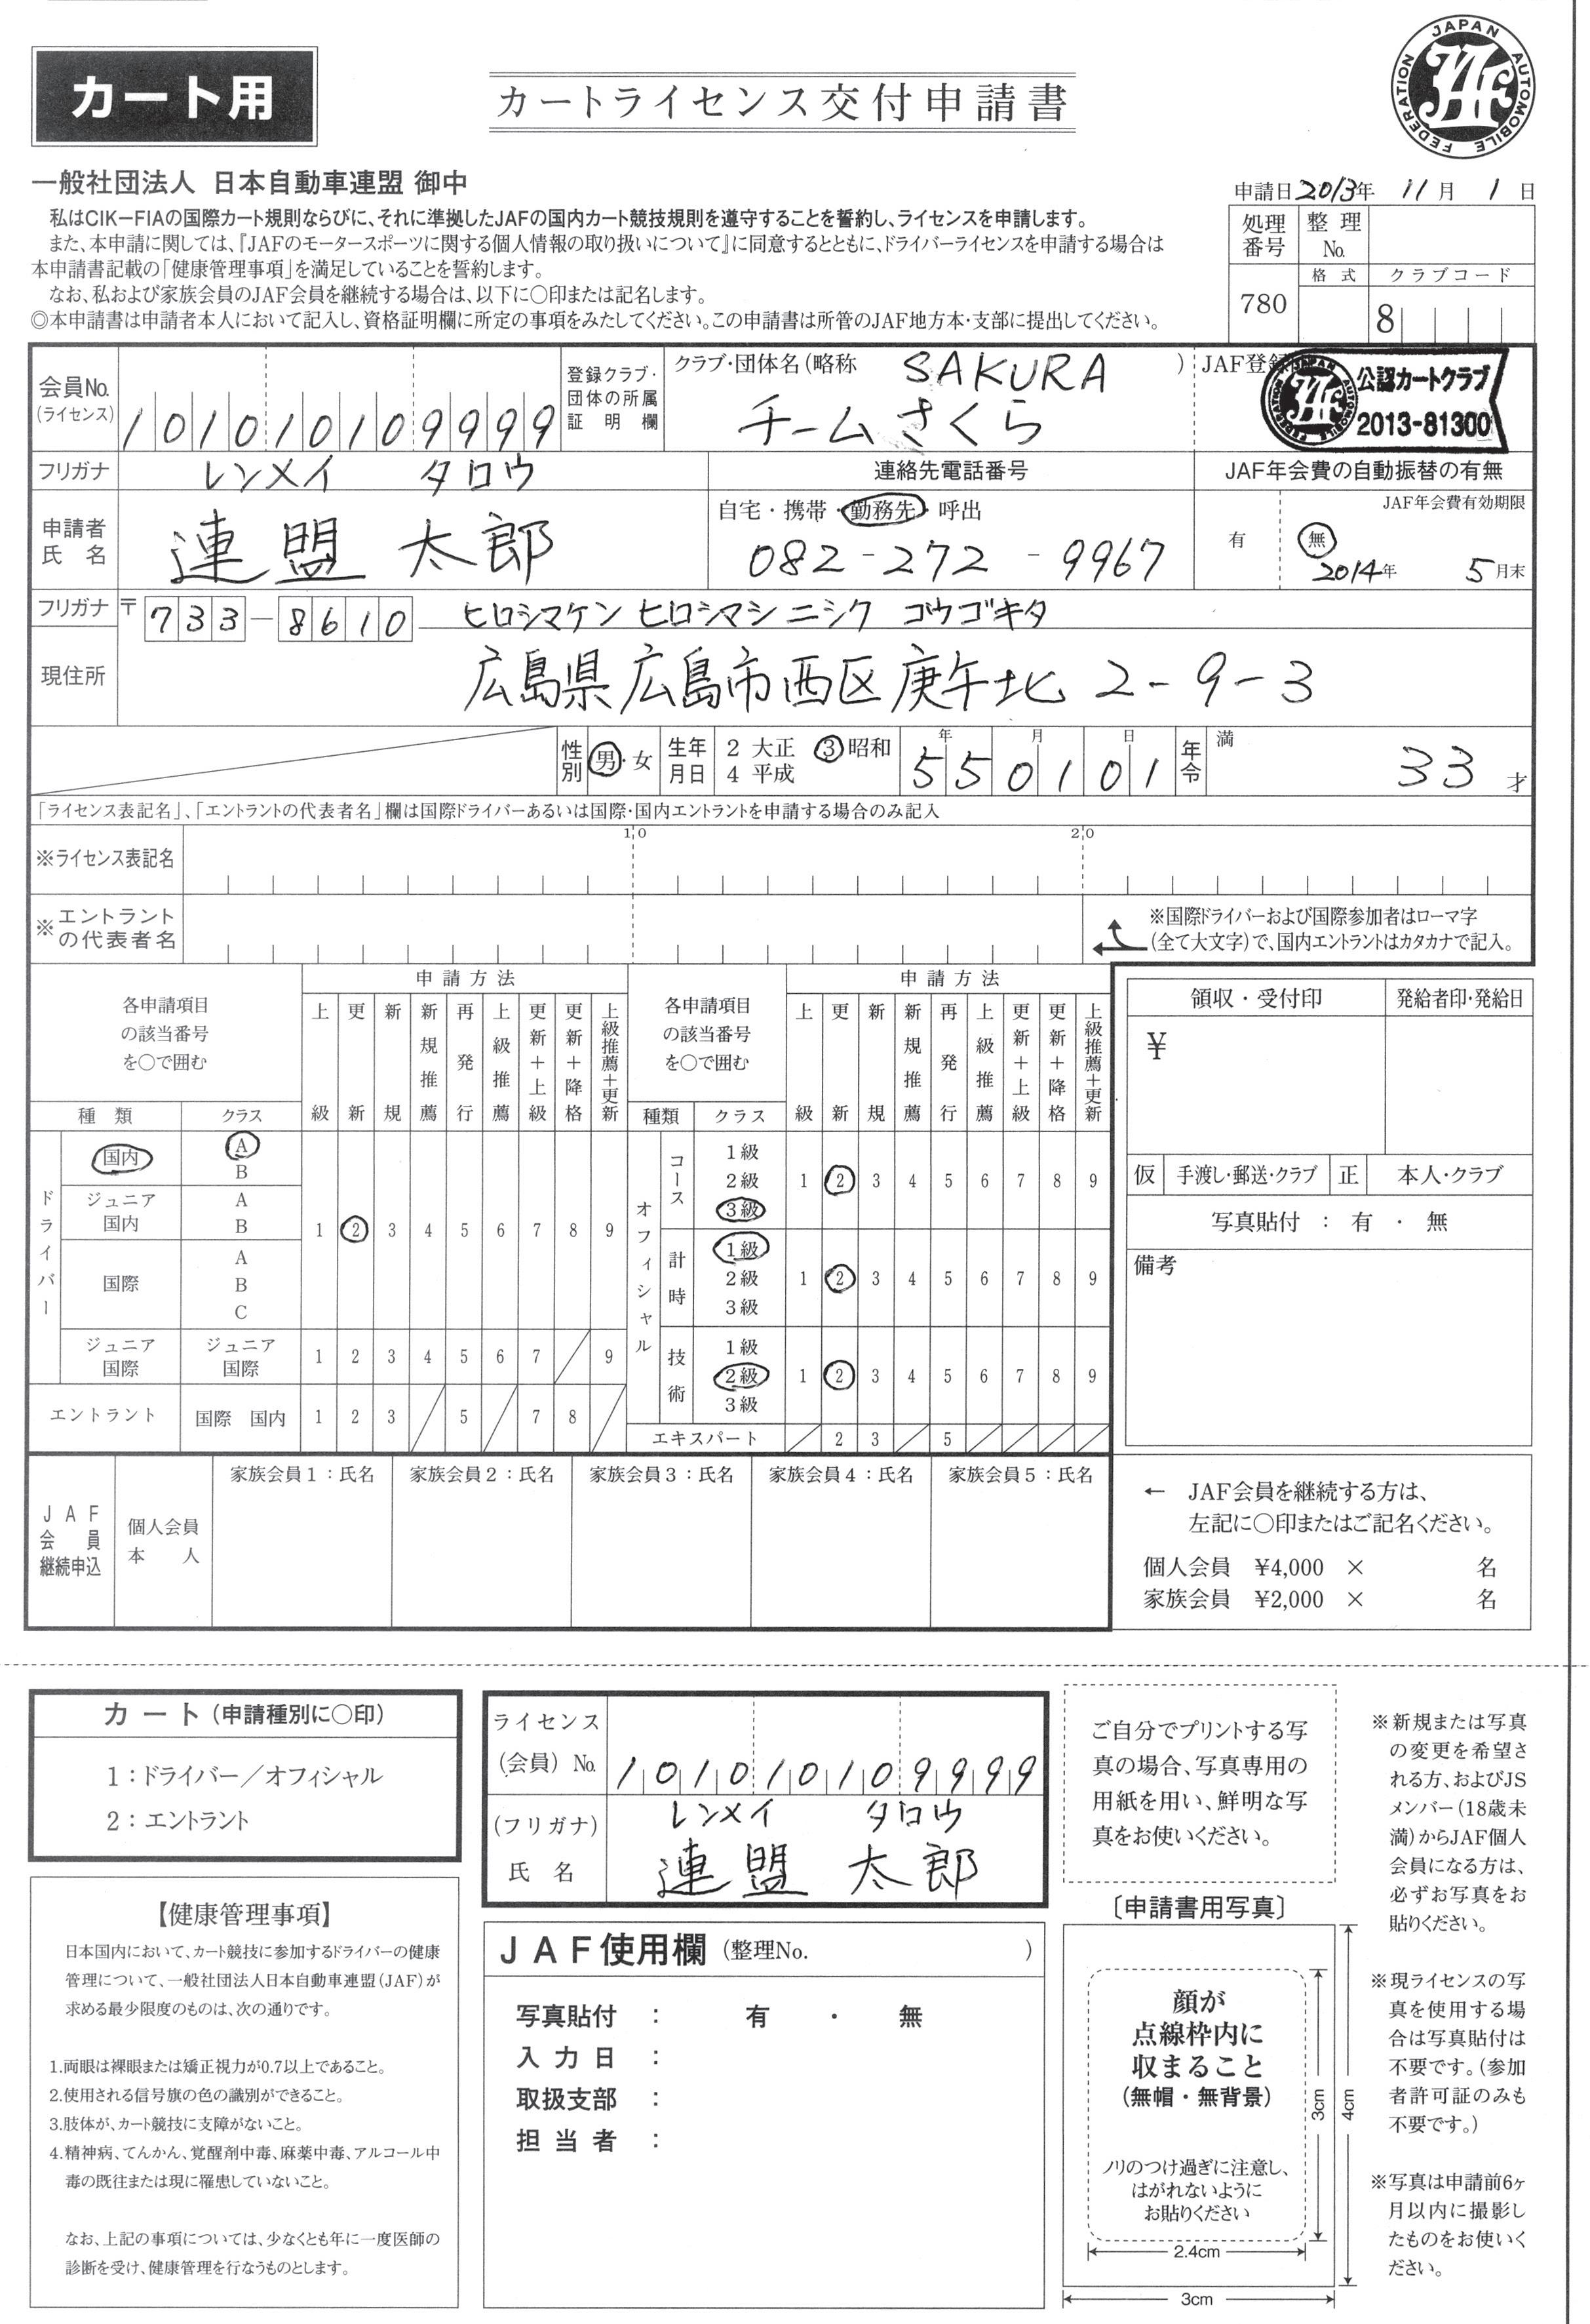 カート用
カートライセンス交付申請書
JAPAN AUTOMOBILE FEDERATION
JAF
一般社団法人 日本自動車連盟 御中
申請日2013年 11月 1日
私はCIK－FIAの国際カート規則ならびに、それに準拠したJAFの国内カート競技規則を遵守することを誓約し、ライセンスを申請します。
また、本申請に関しては、『JAFのモータースポーツに関する個人情報の取り扱いについて』に同意するとともに、ドライバーライセンスを申請する場合は
本申請書記載の「健康管理事項」を満足していることを誓約します。
なお、私および家族会員のJAF会員を継続する場合は、以下に〇印または記名します。
◎本申請書は申請者本人において記入し、資格証明欄に所定の事項をみたしてください。この申請書は所管のJAF地方本・支部に提出してください。
処理番号 整理No.
780 格式 クラブコード
8
会員No.
(ライセンス)
101010109999
登録クラブ・団体の所属証明欄
クラブ・団体名(略称 SAKURA )
チームさくら
JAF登録
公認カートクラブ
2013-81300
フリガナ レンメイ タロウ
連絡先電話番号
JAF年会費の自動振替の有無
申請者氏名 連盟 太郎
自宅・携帯・勤務先・呼出
082-272-9967
JAF年会費有効期限
有 無
2014年 5月末
フリガナ 〒733-8610 ヒロシマケン ヒロシマシ ニシク コウゴキタ
現住所 広島県広島市西区庚午北 2-9-3
性別 男・女 生年月日 2 大正 3 昭和 4 平成 年 月 日 550101 年令 満 33 才
「ライセンス表記名」、「エントラントの代表者名」欄は国際ドライバーあるいは国際・国内エントラントを申請する場合のみ記入
10 20
※ライセンス表記名
※エントラントの代表者名
※国際ドライバーおよび国際参加者はローマ字
(全て大文字)で、国内エントラントはカタカナで記入。
各申請項目の該当番号を〇で囲む
申請方法
上級 更新 新規 新規推薦 再発行 上級推薦 更新＋上級 更新＋降格 上級推薦＋更新
種類 クラス
ドライバー
国内 A B
ジュニア国内 A B
国際 A B C
1 2 3 4 5 6 7 8 9
ジュニア国際 ジュニア国際 1 2 3 4 5 6 7 9
エントラント 国際 国内 1 2 3 5 7 8
各申請項目の該当番号を〇で囲む
申請方法
上級 更新 新規 新規推薦 再発行 上級推薦 更新＋上級 更新＋降格 上級推薦＋更新
種類 クラス
オフィシャル
コース 1級 2級 3級 1 2 3 4 5 6 7 8 9
計時 1級 2級 3級 1 2 3 4 5 6 7 8 9
技術 1級 2級 3級 1 2 3 4 5 6 7 8 9
エキスパート 2 3 5
領収・受付印 発給者印・発給日
¥
仮 手渡し・郵送・クラブ 正 本人・クラブ
写真貼付 ： 有 ・ 無
備考
JAF会員継続申込
個人会員本人
家族会員1：氏名 家族会員2：氏名 家族会員3：氏名 家族会員4：氏名 家族会員5：氏名
← JAF会員を継続する方は、
左記に〇印またはご記名ください。
個人会員 ¥4,000 × 名
家族会員 ¥2,000 × 名
カート(申請種別に〇印)
1：ドライバー／オフィシャル
2：エントラント
ライセンス
(会員) No. 101010109999
(フリガナ) レンメイ タロウ
氏名 連盟 太郎
ご自分でプリントする写
真の場合、写真専用の
用紙を用い、鮮明な写
真をお使いください。
※新規または写真
の変更を希望さ
れる方、およびJS
メンバー(18歳未
満)からJAF個人
会員になる方は、
必ずお写真をお
貼りください。
※現ライセンスの写
真を使用する場
合は写真貼付は
不要です。(参加
者許可証のみも
不要です。)
※写真は申請前6ヶ
月以内に撮影し
たものをお使いく
ださい。
【健康管理事項】
日本国内において、カート競技に参加するドライバーの健康
管理について、一般社団法人日本自動車連盟(JAF)が
求める最少限度のものは、次の通りです。
1.両眼は裸眼または矯正視力が0.7以上であること。
2.使用される信号旗の色の識別ができること。
3.肢体が、カート競技に支障がないこと。
4.精神病、てんかん、覚醒剤中毒、麻薬中毒、アルコール中
毒の既往または現に罹患していないこと。
なお、上記の事項については、少なくとも年に一度医師の
診断を受け、健康管理を行なうものとします。
JAF使用欄(整理No. )
写真貼付 ： 有 ・ 無
入力日 ：
取扱支部 ：
担当者 ：
〔申請書用写真〕
顔が
点線枠内に
収まること
(無帽・無背景)
ノリのつけ過ぎに注意し、
はがれないように
お貼りください
3cm
4cm
2.4cm
3cm